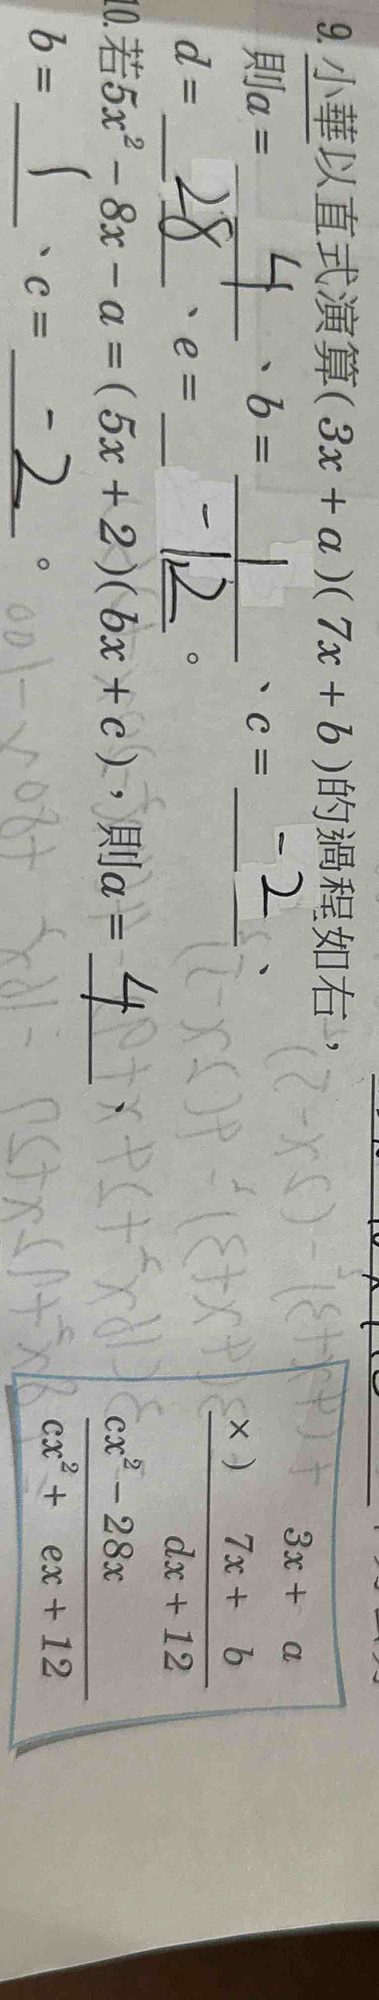 9. 小華以直式演算(3x + a)(7x + b)的過程如右，
則a = 4、b = 1、c = -2、
d = 28、e = -12。
3x + a
×) 7x + b
dx + 12
cx² - 28x
cx² + ex + 12
10. 若5x² - 8x - a = (5x + 2)(bx + c)，則a = 4、
b = 1、c = -2。